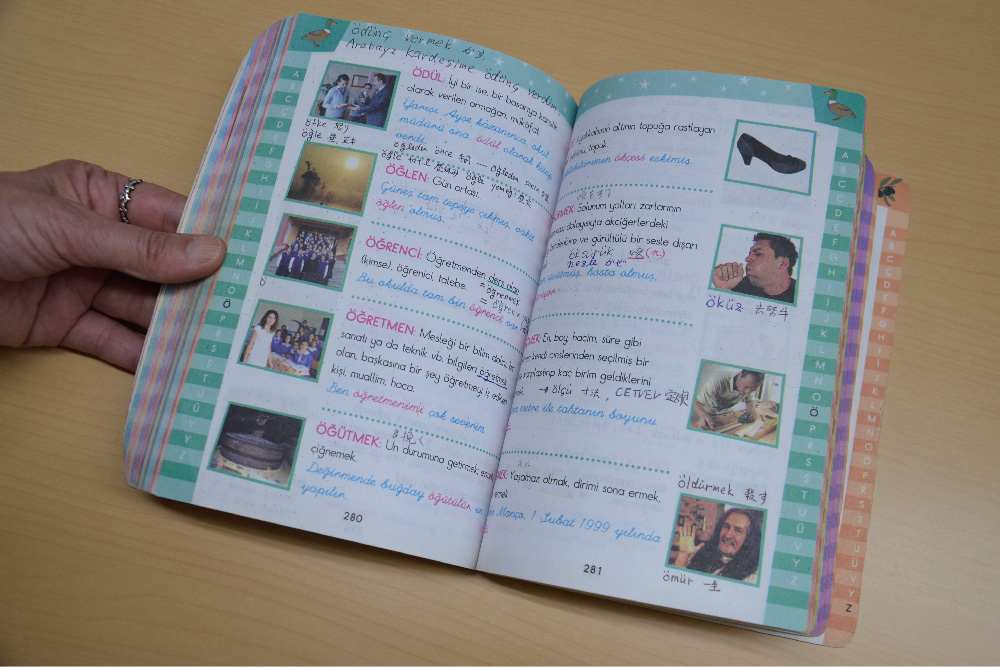 ödünç vermek 貸す
Arabayı kardeşime ödünç verdim
ÖDÜL: İyi bir işe, bir başarıya karşılık
olarak verilen armağan, mükâfat.
Yarışı Ayşe kazanınca, okul
müdürü ona ödül olarak kitap
verdi.
öfke 怒り
öğle 昼
öğleden önce — öğleden sonra
öğle yemeği
ÖĞLEN: Gün ortası.
Güneş tam tepeye çıkmış, vakit
öğlen olmuş.
ÖĞRENCİ: Öğretmenden ders alan
(kimse), öğrenici, talebe.
Bu okulda tam bin öğrenci var
ÖĞRETMEN: Mesleği bir bilim dalı, bir
sanatı ya da teknik vb. bilgileri öğretmek
olan, başkasına bir şey öğretmeyi iş edinen
kişi, muallim, hoca.
Ben öğretmenimi çok severim.
ÖĞÜTMEK: Un durumuna getirmek, ezmek
çiğnemek.
Değirmende buğday öğütülür, un
yapılır.
280
A B C Ç D E F G Ğ H I İ J K L M N O Ö P R S Ş T U Ü V Y Z
ayakkabının altının topuğa rastlayan
topuk.
ökçesi eskimiş.
Solunum yolları zarlarının
dolayısıyla akciğerlerdeki
ve gürültülü bir sesle dışarı
öksürük 咳 (n)
nezle
hasta olmuş,
öküz 去勢牛
En, boy, hacim, süre gibi
kendi cinslerinden seçilmiş bir
kaç birim geldiklerini
→ ölçü 寸法, CETVEL 定規
metre ile tahtanın boyunu
Yaşamaz olmak, dirimi sona ermek,
Manço, 1 Şubat 1999 yılında
öldürmek 殺す
ömür 一生
281
A B C Ç D E F G Ğ H I İ J K L M N O Ö P R S Ş T U Ü V Y Z